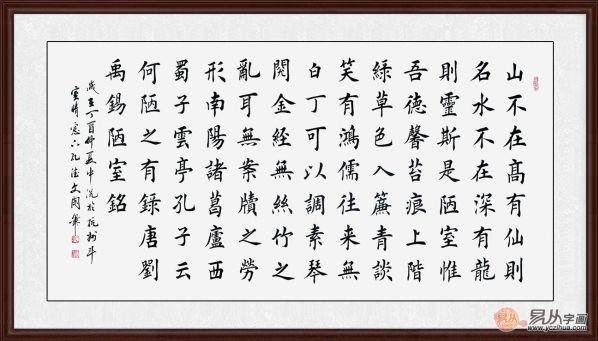 山不在高有仙則
名水不在深有龍
則靈斯是陋室惟
吾德馨苔痕上階
綠草色入簾青談
笑有鴻儒往来無
白丁可以調素琴
閱金經無絲竹之
亂耳無案牘之勞
形南陽諸葛廬西
蜀子雲亭孔子云
何陋之有録唐劉
禹錫陋室銘
歲在丁酉仲夏中浣於杭州斗
室晴窗
易从字画
www.yczihua.com